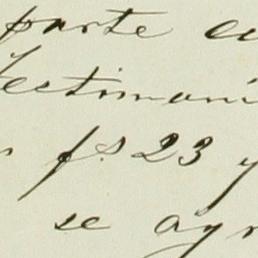 parte
Testimoni
fs 23 y
se agr